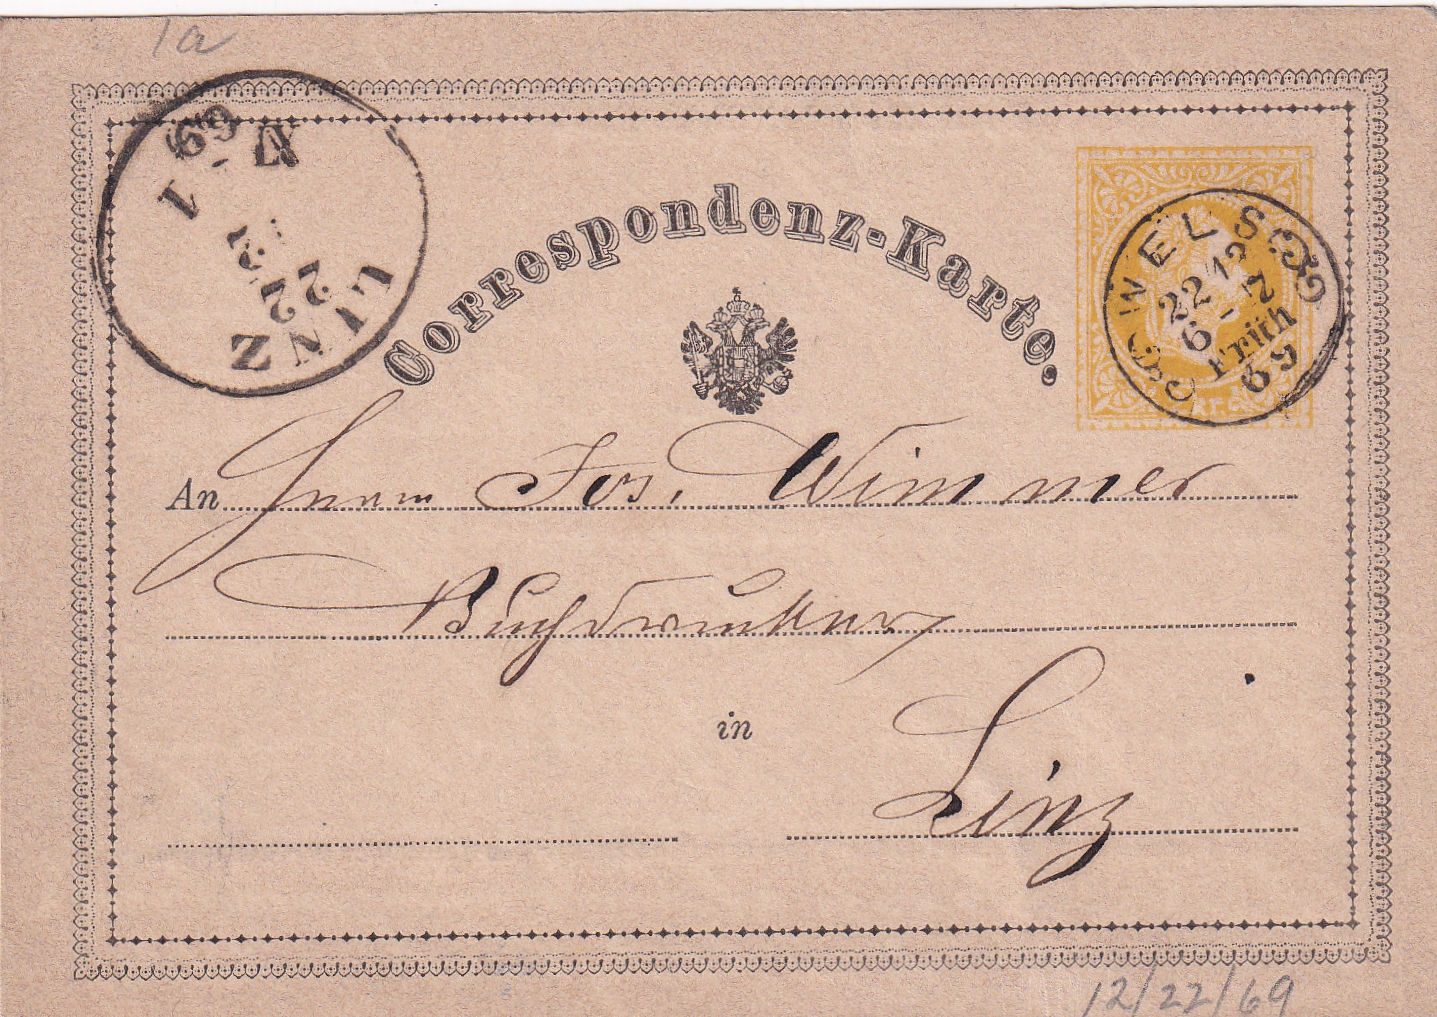 1a
LINZ
22
12
69
Correspondenz-Karte.
WELS
22/12
6-7
Früh
69
Kr.
An Herrn Jos. Wimmer
Buchdrucker
in
Linz
12/22/69